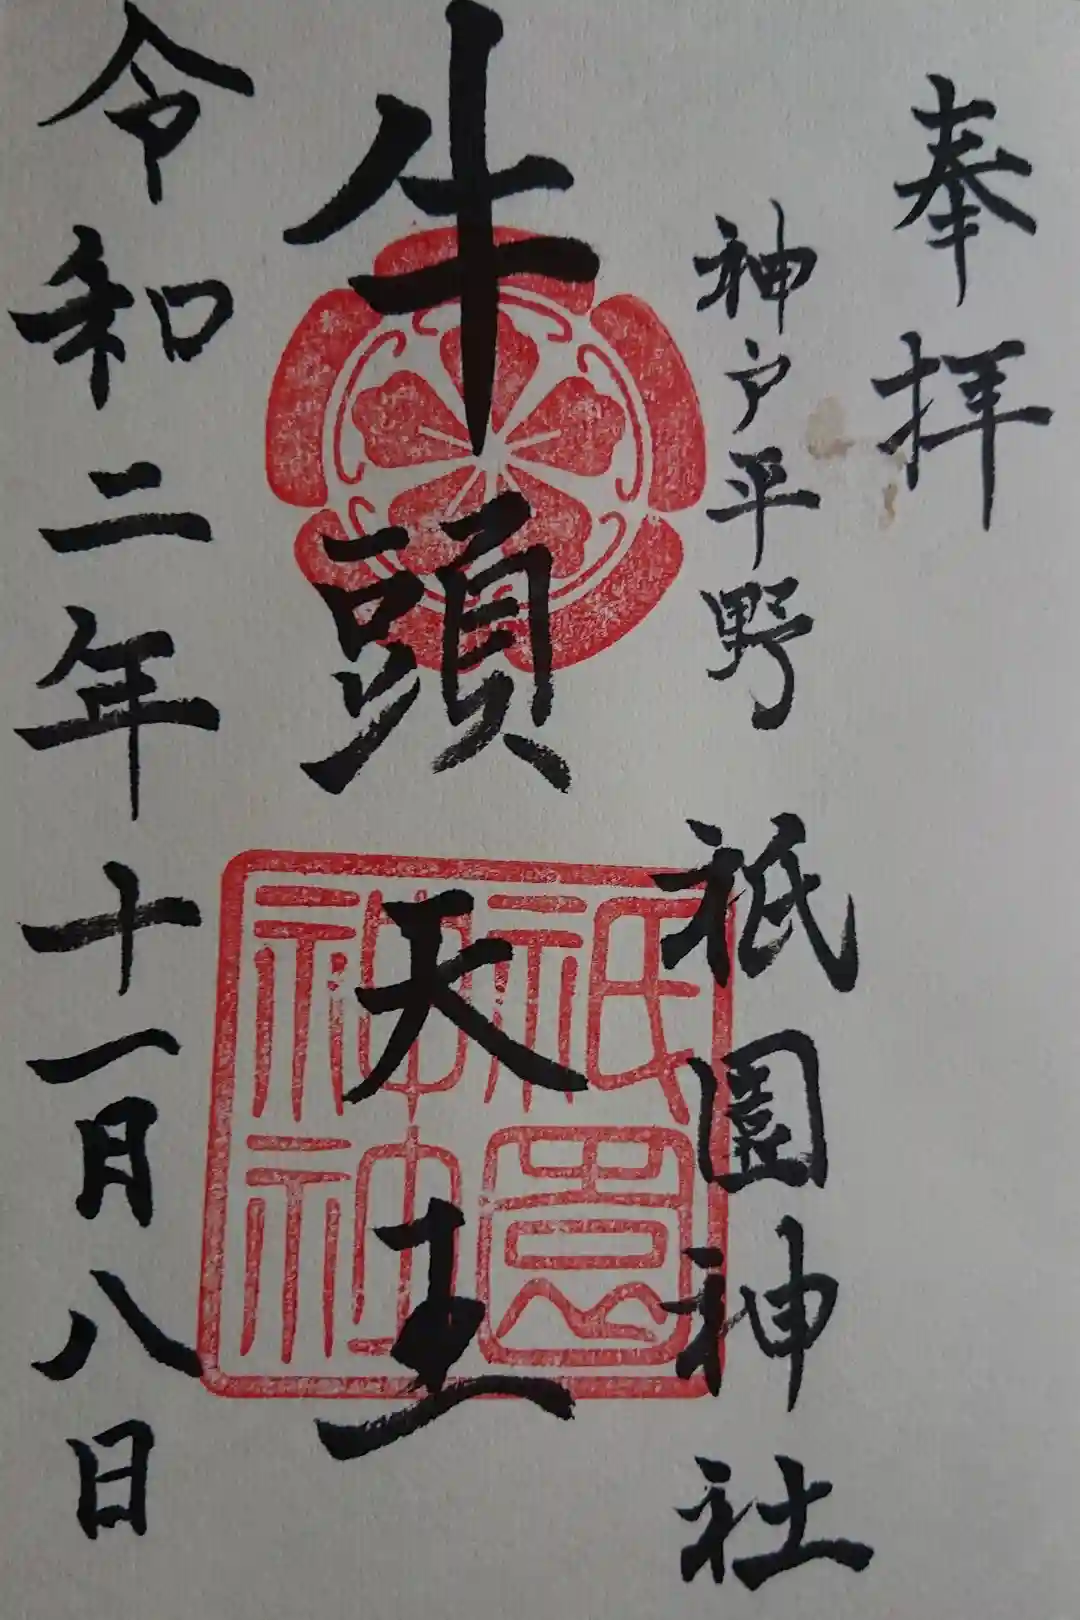 奉拝
神戸平野 祇園神社
牛頭天王
祇園神社
令和二年十一月八日